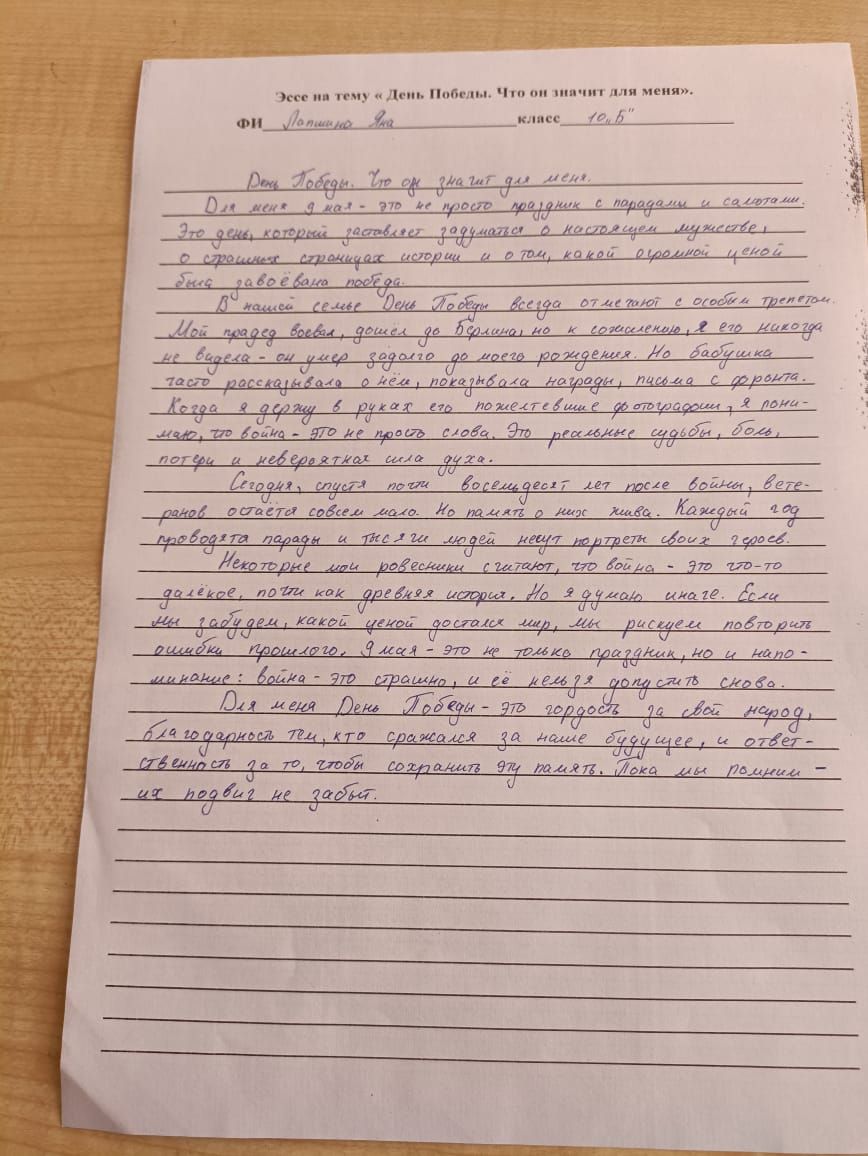 Эссе на тему « День Победы. Что он значит для меня».
ФИ Лапшина Яна класс 10 „Б"
День Победы. Что он значит для меня.
Для меня 9 мая - это не просто праздник с парадами и салютами.
Это день, который заставляет задуматься о настоящем мужестве,
о страшных страницах истории и о том, какой огромной ценой
была завоёвана победа.
В нашей семье День Победы всегда отмечают с особым трепетом.
Мой прадед воевал, дошёл до Берлина, но к сожалению, я его никогда
не видела - он умер задолго до моего рождения. Но бабушка
часто рассказывала о нём, показывала награды, письма с фронта.
Когда я держу в руках его пожелтевшие фотографии, я пони-
маю, что война - это не просто слова. Это реальные судьбы, боль,
потери и невероятная сила духа.
Сегодня, спустя почти восемьдесят лет после войны, вете-
ранов остаётся совсем мало. Но память о них жива. Каждый год
проводята парады и тысячи людей несут портреты своих героев.
Некоторые мои ровесники считают, что война - это что-то
далёкое, почти как древняя история. Но я думаю иначе. Если
мы забудем, какой ценой достался мир, мы рискуем повторить
ошибки прошлого. 9 мая - это не только праздник, но и напо-
минание: война - это страшно, и её нельзя допустить снова.
Для меня День Победы - это гордость за свой народ,
благодарность тем, кто сражался за наше будущее, и ответ-
ственность за то, чтобы сохранить эту память. Пока мы помним -
их подвиг не забыт.